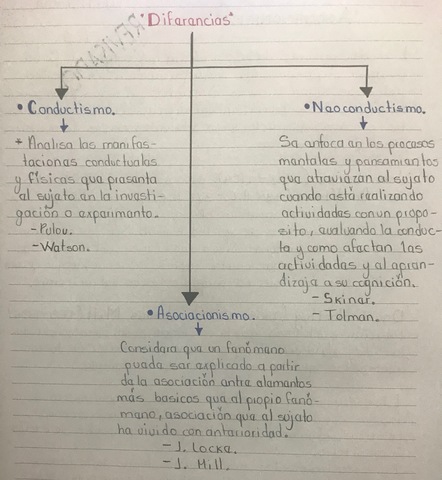 "Diferencias"
REVISADO
• Conductismo.
* Analisa las manifes-
taciones conductuales
y físicas que presenta
el sujeto en la investi-
gación o experimento.
- Pulov.
- Watson.
• Neoconductismo.
Se enfoca en los procesos
mentales y pensamientos
que ataviezan al sujeto
cuando está realizando
actividades con un propo-
zito, evaluando la conduc-
ta y como afectan las
actividades y al apren-
dizaje a su cognición.
- Skiner.
- Tolman.
• Asociacionismo.
Considera que un fenómeno
pueda ser explicado a partir
de la asociación entre elementos
más basicos que el propio fenó-
meno, asociación que el sujeto
ha vivido con anterioridad.
- J. Locke.
- J. Mill.